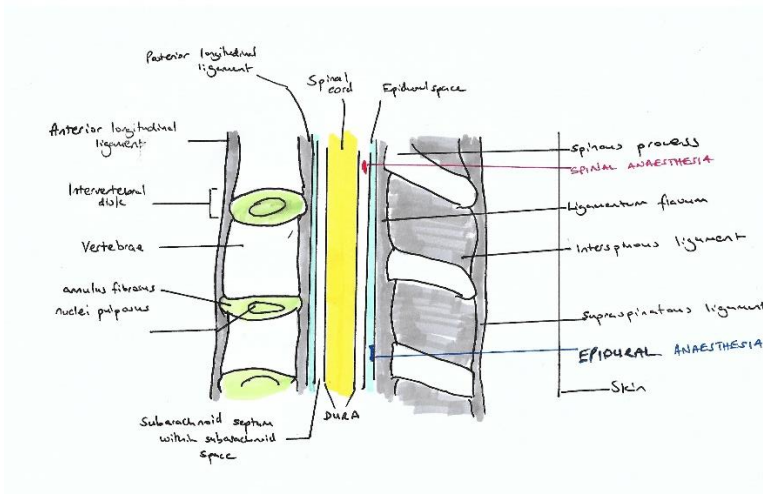 Posterior longitudinal
ligament
Spinal
cord
Epidural space
Anterior longitudinal
ligament
Intervertebral
disk
Vertebrae
annulus fibrosus
nuclei pulposus
Subarachnoid septum
within subarachnoid
space
DURA
Spinous process
SPINAL ANAESTHESIA
Ligamentum flavum
Interspinous ligament
Supraspinatous ligament
EPIDURAL ANAESTHESIA
Skin